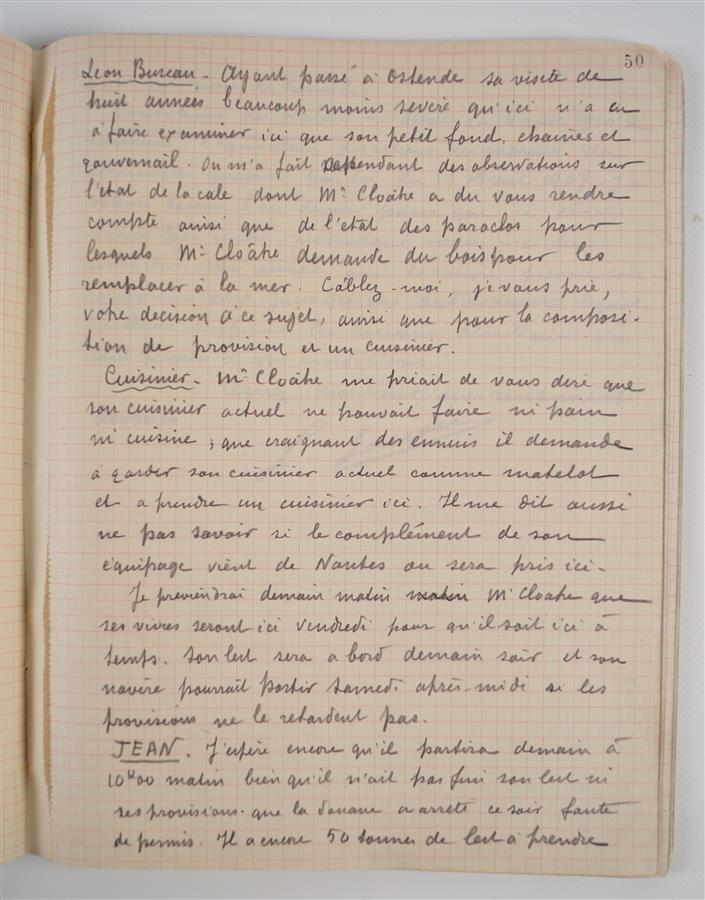 50
Leon Bureau - Ayant passé à Ostende sa visite de
huit années beaucoup moins severe qu'ici n'a eu
à faire examiner ici que son petit fond, chaines et
gouvernail. On m'a fait cependant des observations sur
l'état de la cale dont Mr Cloâtre a du vous rendre
compte ainsi que de l'etat des paraclos pour
lesquels Mr Cloâtre demande du bois pour les
remplacer à la mer. Câblez-moi, je vous prie,
votre decision à ce sujet, ainsi que pour la composi-
tion de provision et un cuisinier.
Cuisinier - Mr Cloâtre me priait de vous dire que
son cuisinier actuel ne pouvait faire ni pain
ni cuisine ; que craignant des ennuis il demande
à garder son cuisinier actuel comme matelot
et a prendre un cuisinier ici. Il me dit aussi
ne pas savoir si le complément de son
équipage vient de Nantes ou sera pris ici -
Je previendrai demain matin matin Mr Cloatre que
ses vivres seront ici vendredi pour qu'il soit ici à
temps. Son lest sera a bord demain soir et son
navire pourrait partir Samedi après-midi si les
provisions ne le retardent pas.
JEAN. J'espère encore qu'il partira demain à
10H00 matin bien qu'il n'ait pas fini son lest ni
ses provisions que la douane a arreté ce soir faute
de permis. Il a encore 50 tonnes de lest à prendre